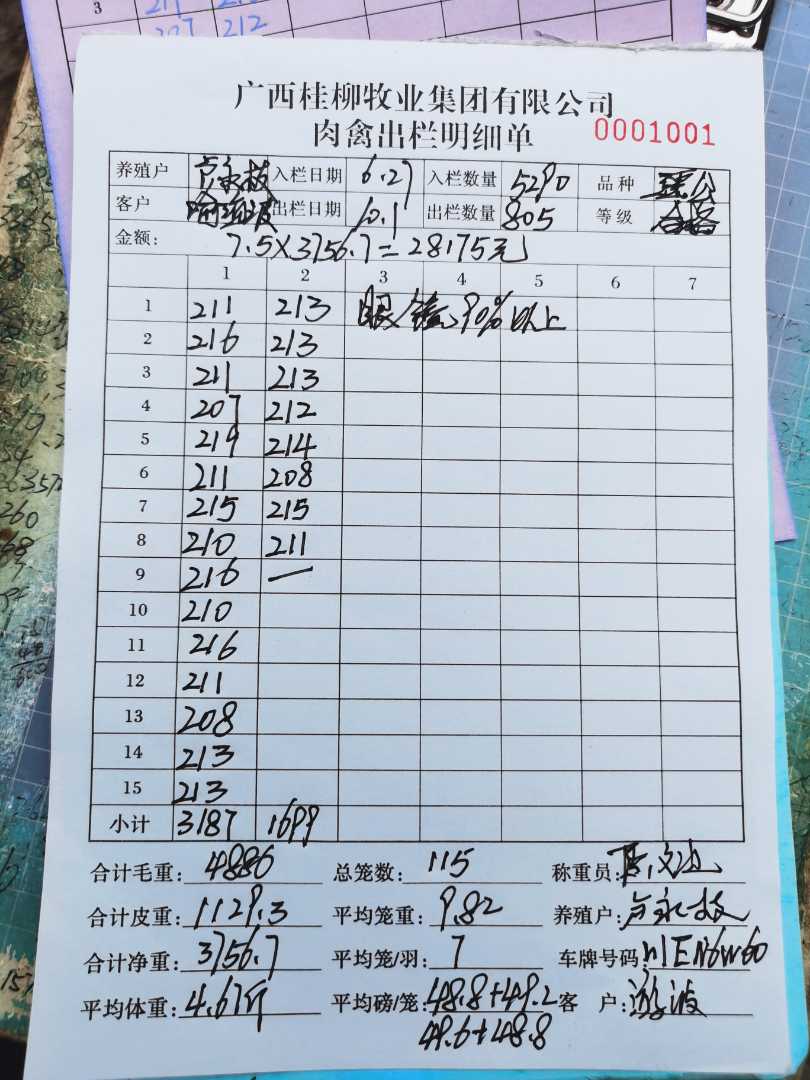 3 211
207 212
广西桂柳牧业集团有限公司
肉禽出栏明细单 0001001
养殖户 入栏日期 6.27 入栏数量 5290 品种
客户 出栏日期 10.1 出栏数量 805 等级 合格
金额: 7.5×3756.7=28175元
1 2 3 4 5 6 7
1 211 213 眼镜90%以上
2 216 213
3 211 213
4 207 212
5 219 214
6 211 208
7 215 215
8 210 211
9 216 —
10 210
11 216
12 211
13 208
14 213
15 213
小计 3187 1699
合计毛重: 4886 总笼数: 115 称重员:
合计皮重: 1129.3 平均笼重: 9.82 养殖户: 卢永枝
合计净重: 3756.7 平均笼/羽: 7 车牌号码
平均体重: 4.67斤 平均磅/笼: 48.8+49.2 客 户: 游波
49.6+48.8